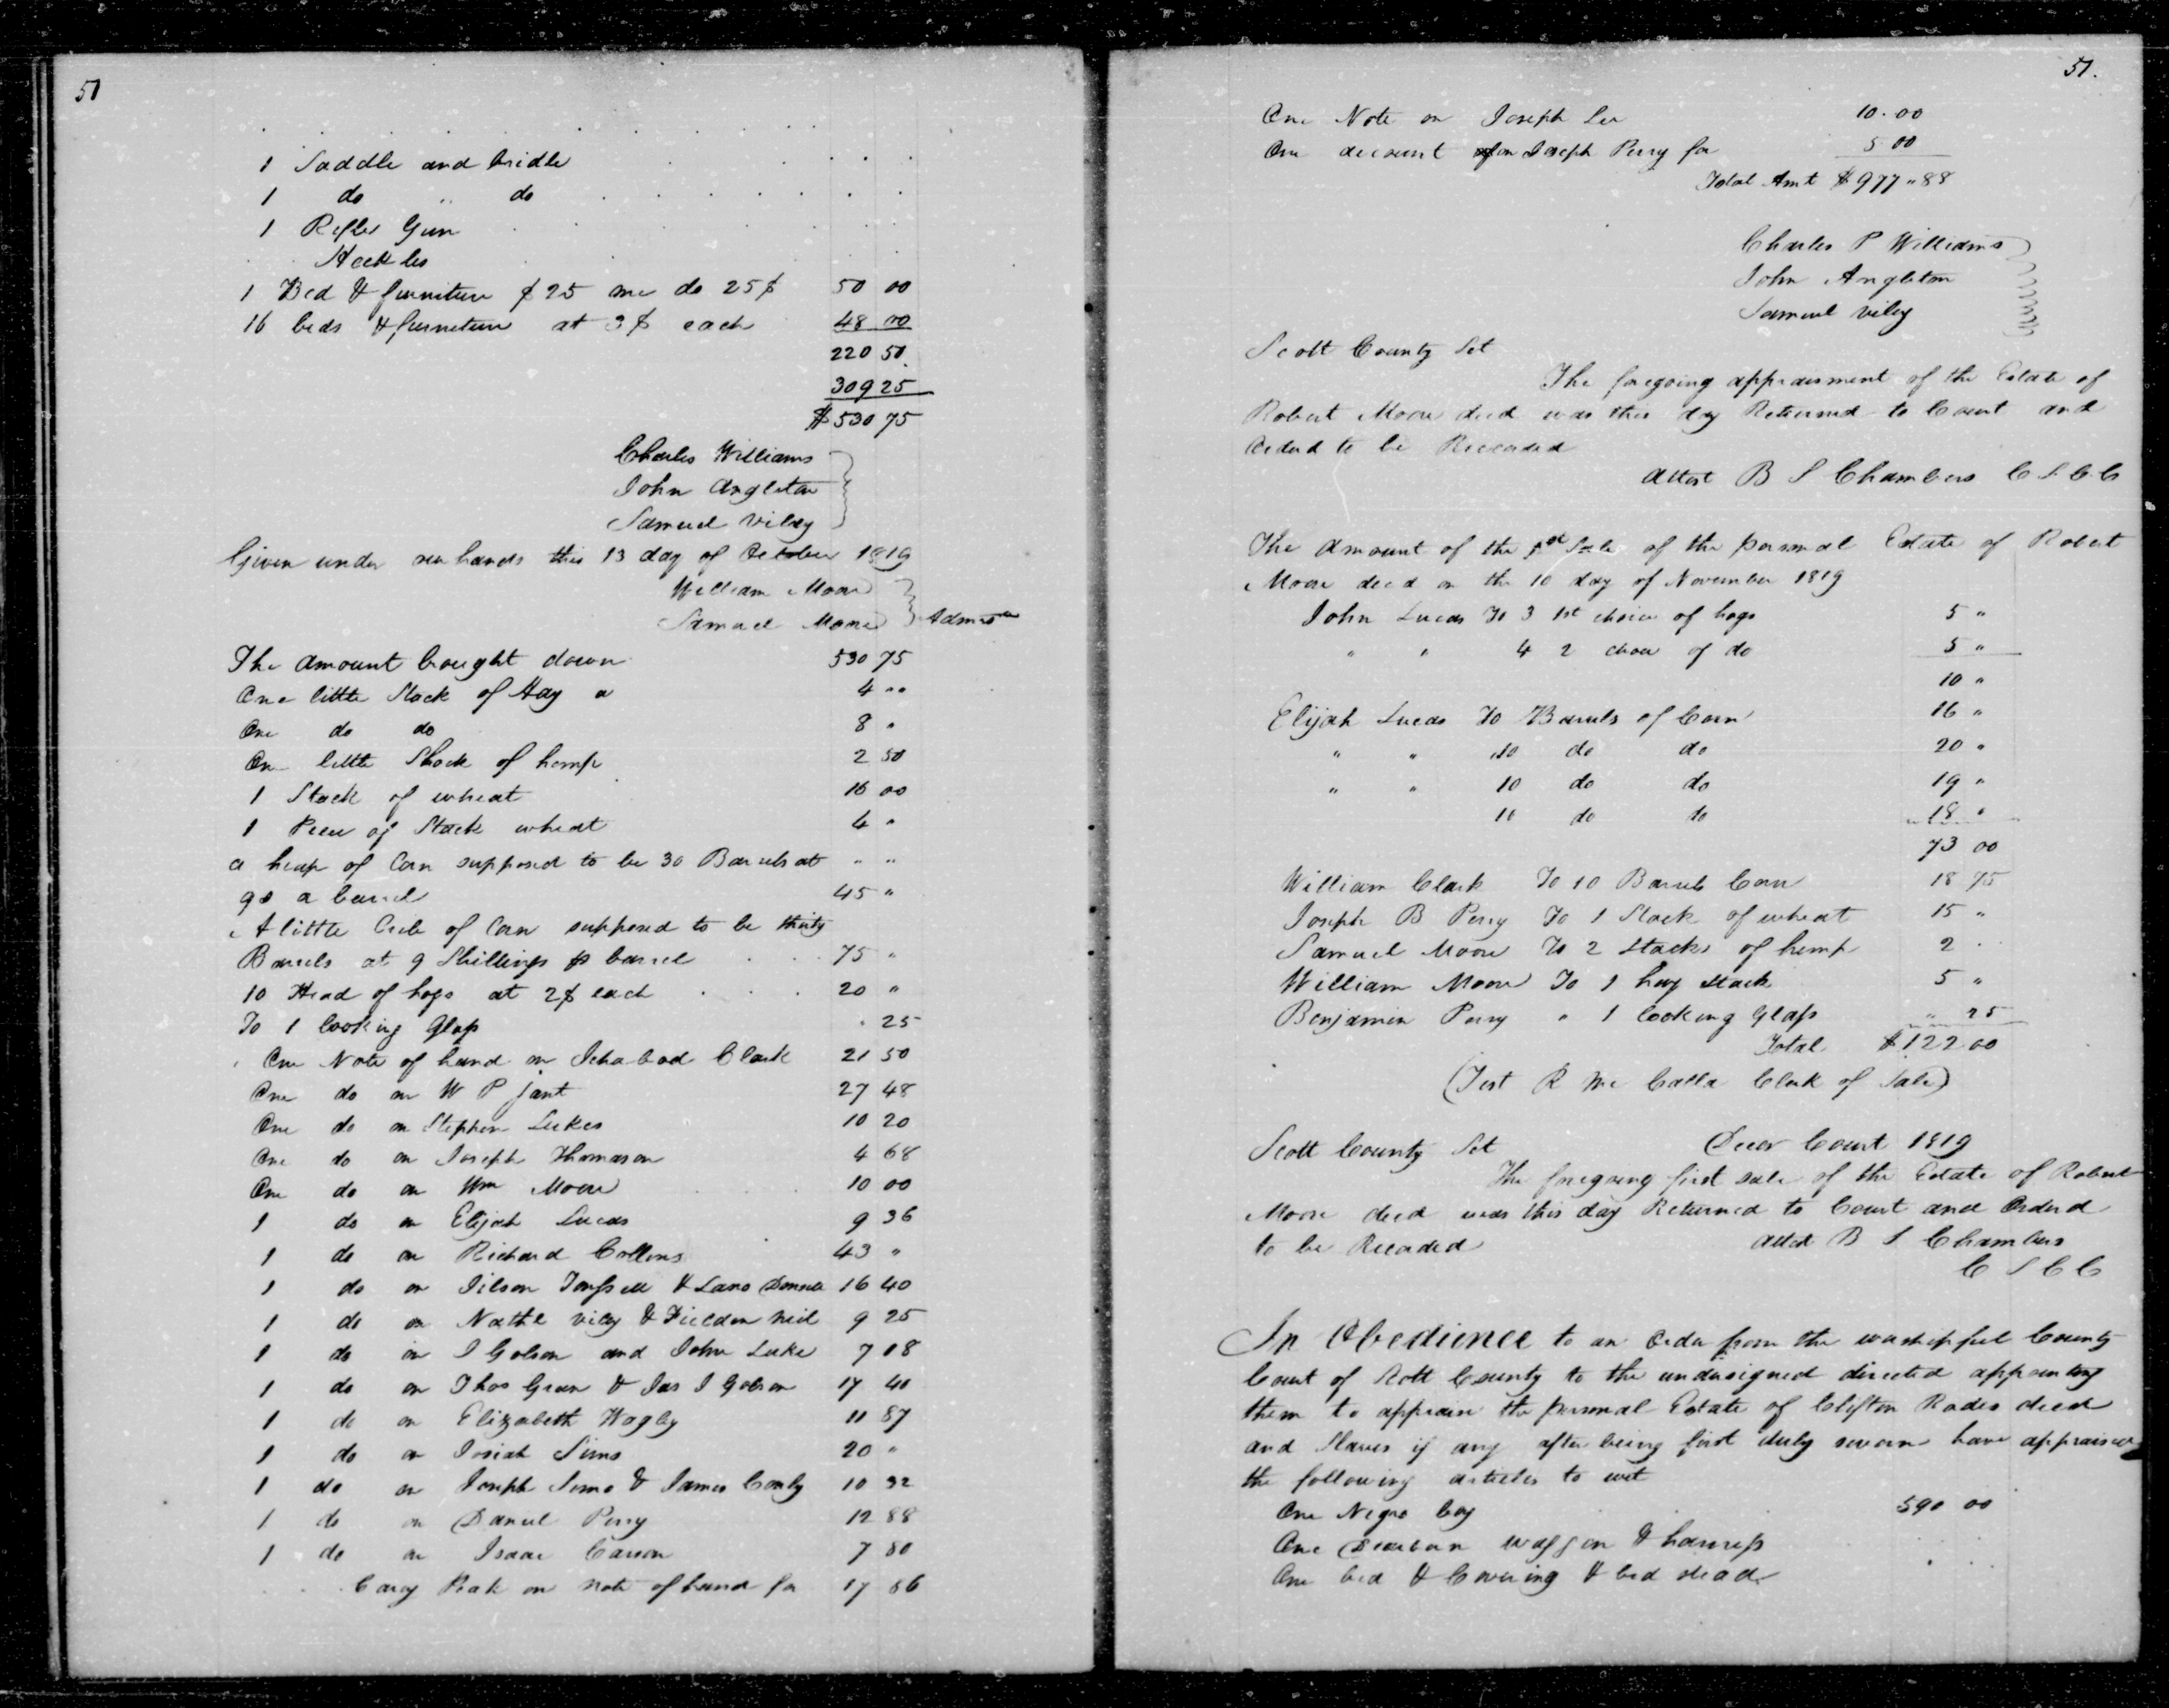 51
1 Saddle and bridle
1 do " do
1 Rifle Gun
Heckles
1 Bed & furniture $25 one do 25$ 50 00
16 beds & furniture at 3$ each 48 00
220 50
309 25
$530 75
Charles Williams
John Angleton
Samuel Viley
Given under our hands this 13 day of October 1819
William Moore
Samuel Moore
The amount brought down 530 75
One little Stack of Hay a 4 ..
One do do 8 "
On little Shock of hemp 2 50
1 Stack of wheat 16 00
1 Piece of Stack wheat 4 "
a heap of Corn supposed to be 30 Barrels at " "
9s a barrel 45 "
A little Crib of Corn supposed to be thirty
Barrels at 9 Shillings p barrel 75 "
10 Head of hogs at 2$ each 20 "
To 1 looking Glass . 25
One Note of hand on Ichabod Clark 21 50
One do on W P 27 48
One do on Stephen Lukes 10 20
One do on Joseph Thomason 4 68
One do on Wm Moore 10 00
1 do on Elijah Lucas 9 36
1 do on Richard Collins 43 "
1 do on & 16 40
1 do on Nathl Viley & Fielden Neil 9 25
1 do on J Golson and John Luke 7 08
1 do on Thos Green & Jas J Golson 17 40
1 do on Elizabeth Wagby 11 87
1 do on Josiah Sims 20 "
1 do on Joseph Sims & James Conly 10 92
1 do on Daniel Perry 12 88
1 do on Isaac Carson 7 80
Cary Peak on note of hand for 17 86
51.
One Note on Joseph Lee 10.00
One account on Joseph Perry for 5 00
Total Amt $977.88
Charles P Williams
John Angleton
Samuel Viley
Scott County Sct
The foregoing appraisment of the Estate of
Robert Moore decd was this day Returned to Court and
Orderd to be Recorded
Attest B S Chambers C S C C
The Amount of the 1st Sale of the personal Estate of Robert
Moore decd on the 10 day of November 1819
John Lucas To 3 1st choice of hogs 5 "
" " 4 2 choice of do 5 "
10 "
Elijah Lucas To Barrels of Corn 16 "
" " 10 do do 20 "
" " 10 do do 19 "
10 do do 18 "
73 00
William Clark To 10 Barrels Corn 18 75
Joseph B Perry To 1 Stack of wheat 15 "
Samuel Moore To 2 Stacks of hemp 2
William Moore To 1 hay stack 5 "
Benjamin Perry " 1 looking Glass " 25
Total $122 00
(Test R Mc Calla Clerk of Sale)
Scott County Sct Decr Court 1819
The foregoing first sale of the Estate of Robert
Moore decd was this day Returned to Court and Orderd
to be Recorded Attest B S Chambers
C S C C
In Obedience to an Order from the worshipful County
Court of Scott County to the undersigned directed appointing
them to appraise the personal Estate of Clifton Rodes decd
and Slaves if any after being first duly sworn have appraised
the following articles to wit
One Negro boy 590 00
One Dearborn waggon & harness
One bed & Covering & bed stead